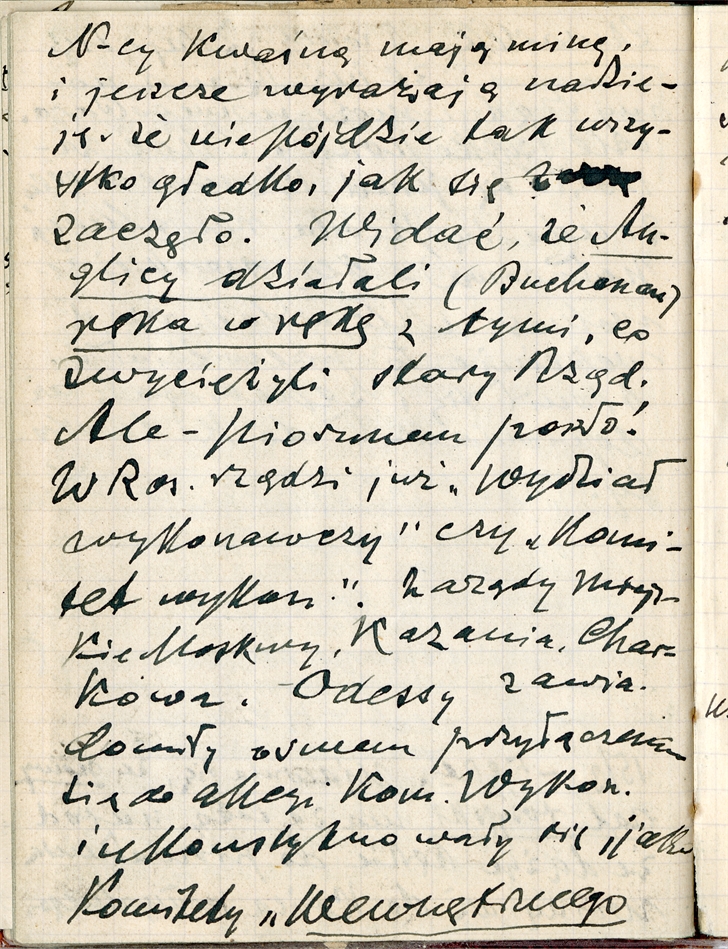 N-cy kwaśną mają minę,
i jeszcze wyrażają nadzie-
ję, że nie pójdzie tak wszy-
stko gładko, jak się
zaczęło. Widać, że An-
glicy działali (Buchanan)
ręka w rękę z tymi, co
zwyciężyli stary Rząd.
Ale - piorunem poszło!
W Ros. rządzi już „Wydział
wykonawczy" czy „Komi-
tet wykon.". Zarządy miej-
skie Moskwy, Kazania, Char-
kowa, Odessy zawia-
domiły o swem przyłączeniu
się do akcji Kom. Wykon.
i ukonstytuowały się, jako
Komitety „Wewnętrznego